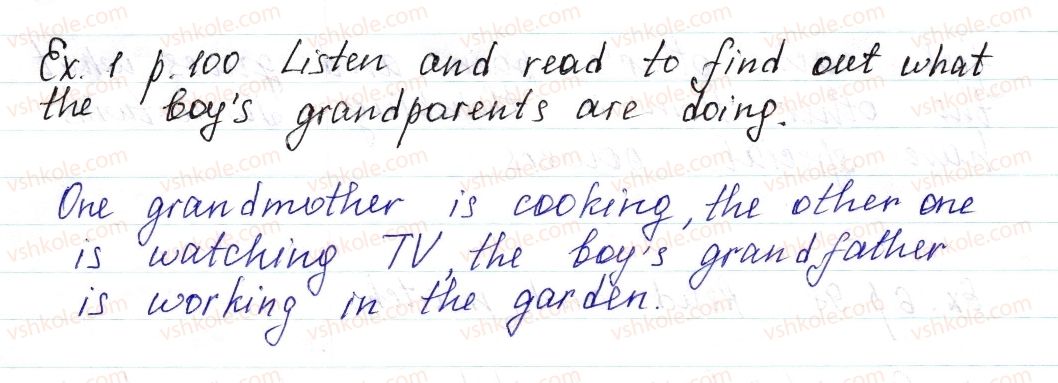 Ex. 1 p. 100 Listen and read to find out what
the boy's grandparents are doing.
One grandmother is cooking, the other one
is watching TV, the boy's grandfather
is working in the garden.